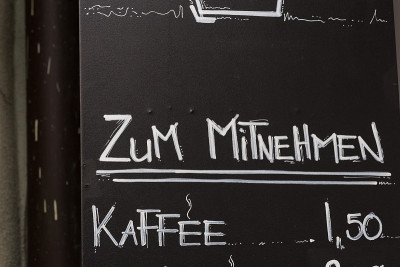 ZUM MITNEHMEN
KAFFEE 1,50